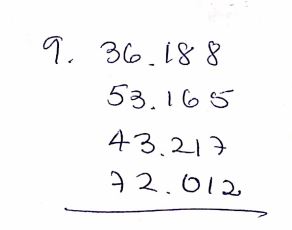 9. 36.188
53.165
43.217
72.012